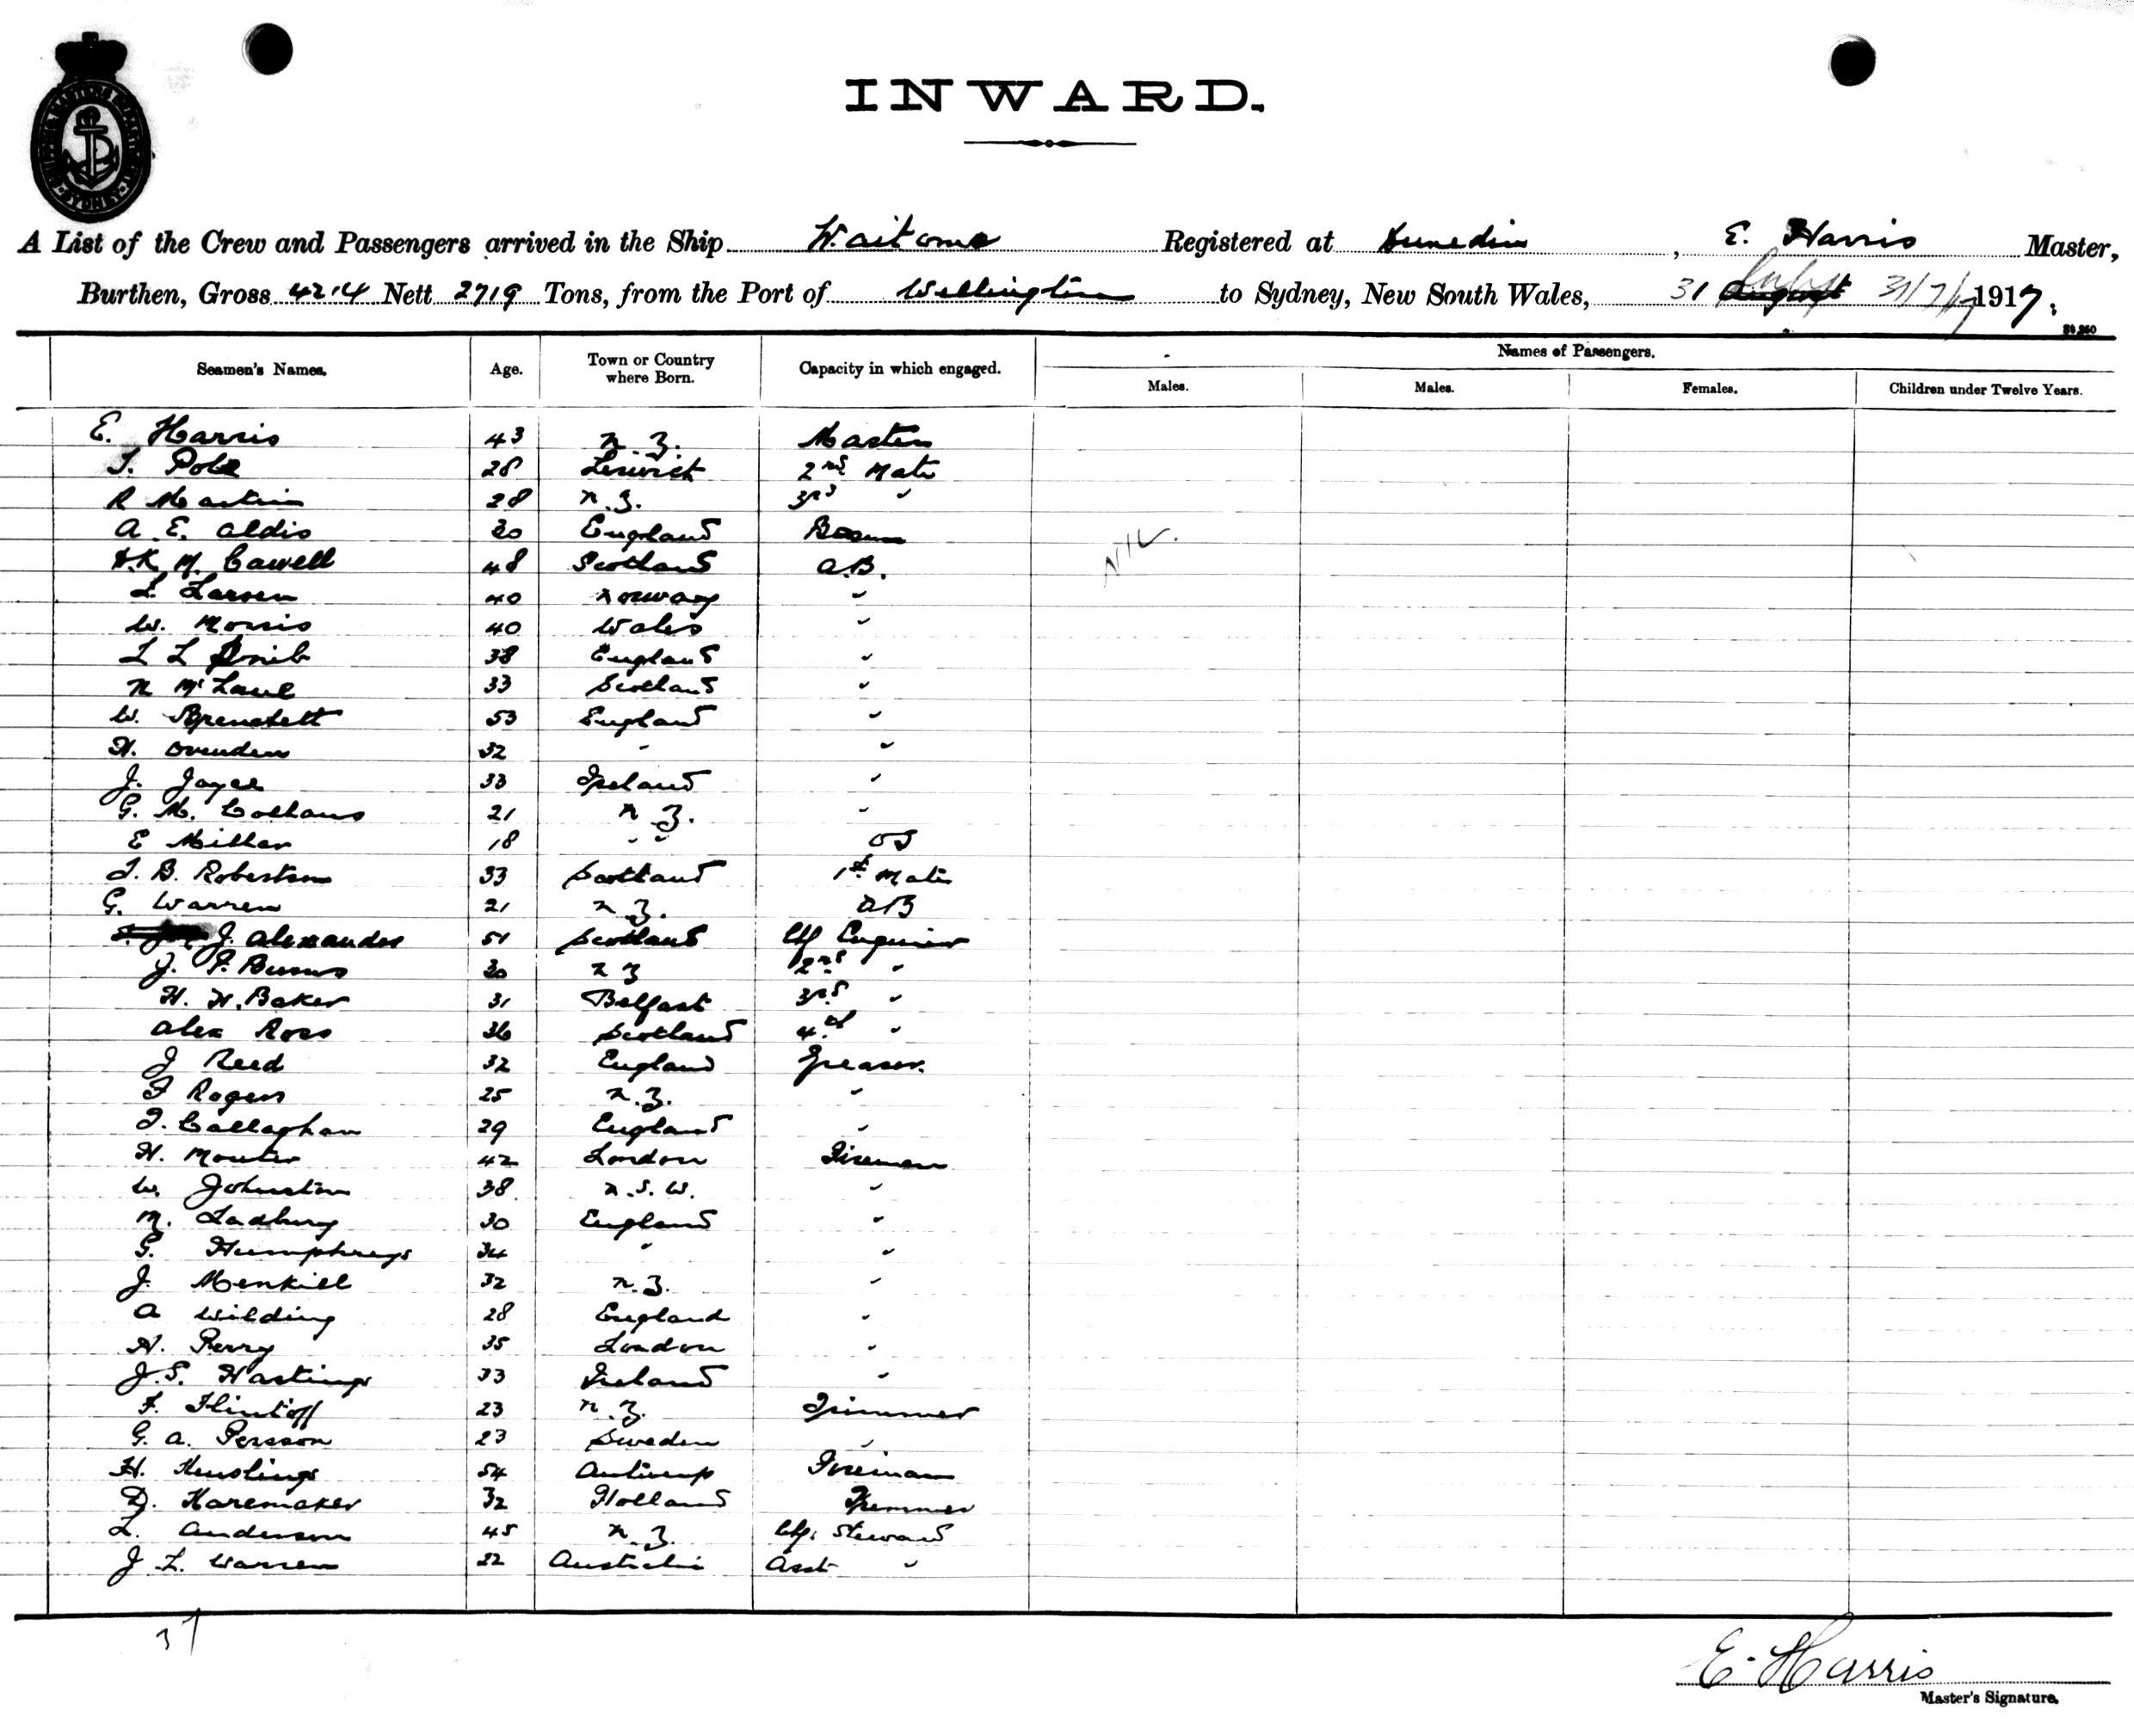 INWARD.
A List of the Crew and Passengers arrived in the Ship Waitomo Registered at Dunedin, E. Harris Master,
Burthen, Gross 4214 Nett 2719 Tons, from the Port of Wellington to Sydney, New South Wales, 31 August July 31/7/17 1917.
Seamen's Names. Age. Town or Country where Born. Capacity in which engaged. Names of Passengers.
Males. Males. Females. Children under Twelve Years.
E. Harris 43 N.Z. Master
T. Pole 28 Lerwick 2nd Mate
R Martin 28 N.Z. 3rd "
A. E. Aldis 30 England Bosun
M. Cawell 48 Scotland A.B.
L. Larsen 40 Norway "
W. Morris 40 Wales "
L L 38 England "
N 33 Scotland "
W. 53 England "
H. Ovenden 32 " "
J. Joyce 33 Ireland "
G. M. 21 N.Z. "
E Millar 18 " " OS
J. B. Robertson 33 Scotland 1st Mate
G. Warren 21 N.Z. AB
J. Alexander 51 Scotland Chf Engineer
J. F. Burns 30 N Z 2nd "
H. H. Baker 31 Belfast 3rd "
Alex Ross 36 Scotland 4th "
J Reed 32 England Greaser.
F Rogers 25 N.Z. "
J. Callaghan 29 England "
H. 42 London Fireman
W. Johnston 38 N.S.W. "
M. Ladbury 30 England "
G. Humphreys 34 " "
J. Menkill 32 N.Z. "
A Wilding 28 England "
H. Perry 35 London "
J. S. Hastings 33 Ireland "
F. Flintoff 23 N.Z. Trimmer
G. A. Persson 23 Sweden "
H. 54 Antwerp Fireman
D. Haremaker 32 Holland Trimmer
L. Anderson 45 N.Z. Chf. Steward
J. L. Warren 22 Australia Asst "
NIL.
37
E. Harris
Master's Signature.